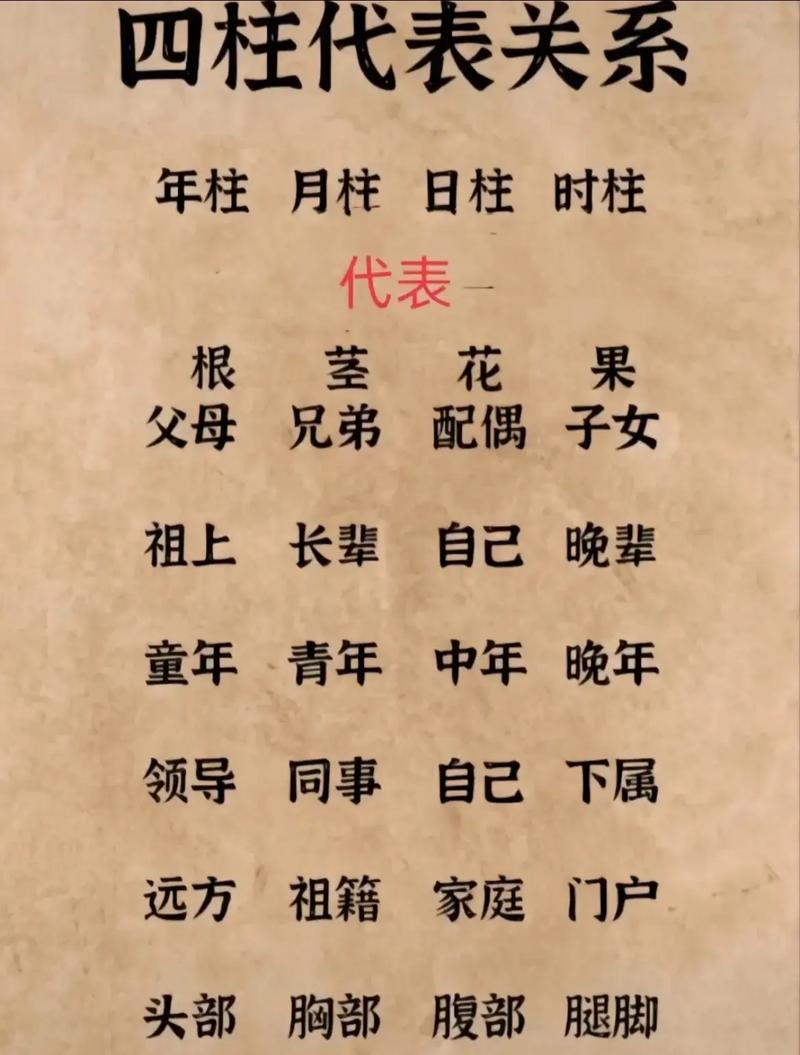 四柱代表关系
年柱 月柱 日柱 时柱
代表
根 茎 花 果
父母 兄弟 配偶 子女
祖上 长辈 自己 晚辈
童年 青年 中年 晚年
领导 同事 自己 下属
远方 祖籍 家庭 门户
头部 胸部 腹部 腿脚